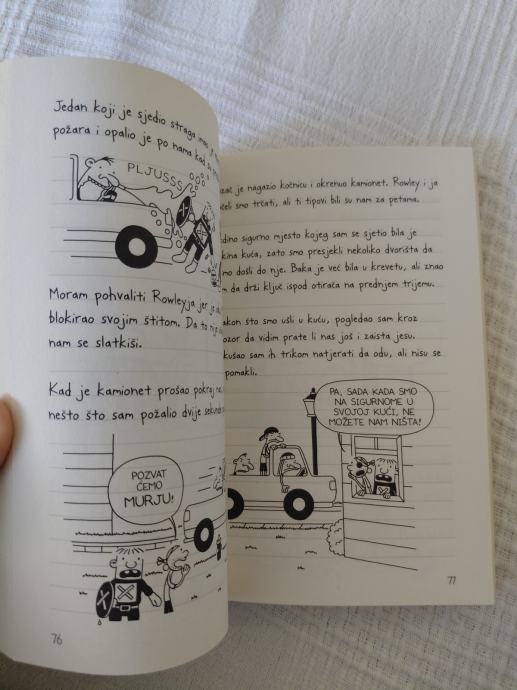 Jedan koji je sjedio straga
požara i opalio je po nama kad
PLJUSSS
Moram pohvaliti Rowleyja jer je
blokirao svojim štitom. Da to nije
nam se slatkiši.
Kad je kamionet prošao pokraj
nešto što sam požalio dvije
POZVAT
ĆEMO
MURJU!
76
je nagazio kočnicu i okrenuo kamionet. Rowley i ja
smo trčati, ali ti tipovi bili su nam za petama.
sigurno mjesto kojeg sam se sjetio bila je
kuća, zato smo presjekli nekoliko dvorišta da
došli do nje. Baka je već bila u krevetu, ali znao
da drži ključ ispod otirača na prednjem trijemu.
što smo ušli u kuću, pogledao sam kroz
da vidim prate li nas još i zaista jesu.
sam ih trikom natjerati da odu, ali nisu se
pomakli.
PA, SADA KADA SMO
NA SIGURNOME U
SVOJOJ KUĆI, NE
MOŽETE NAM NIŠTA!
77